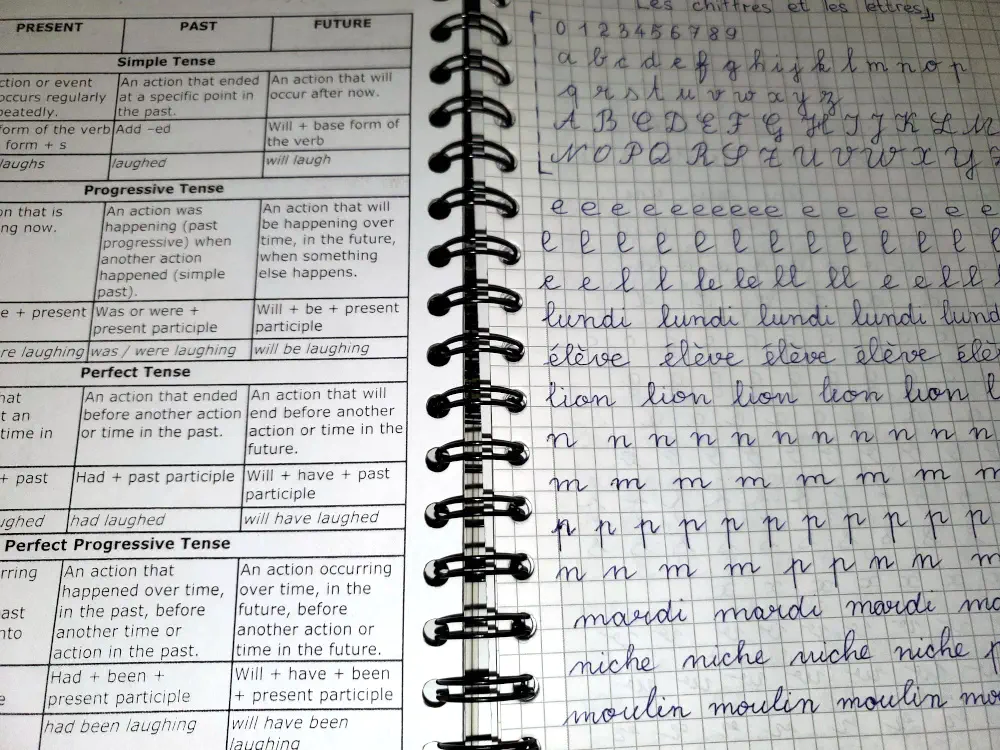 PRESENT PAST FUTURE
Simple Tense
ction or event
occurs regularly
peatedly.
An action that ended
at a specific point in
the past.
An action that will
occur after now.
form of the verb
form + s
Add –ed
Will + base form of
the verb
laughs
laughed
will laugh
Progressive Tense
on that is
ng now.
An action was
happening (past
progressive) when
another action
happened (simple
past).
An action that will
be happening over
time, in the future,
when something
else happens.
e + present
Was or were +
present participle
Will + be + present
participle
re laughing
was / were laughing
will be laughing
Perfect Tense
hat
t an
time in
An action that ended
before another action
or time in the past.
An action that will
end before another
action or time in the
future.
+ past
Had + past participle
Will + have + past
participle
ughed
had laughed
will have laughed
Perfect Progressive Tense
rring
ast
nto
An action that
happened over time,
in the past, before
another time or
action in the past.
An action occurring
over time, in the
future, before
another action or
time in the future.
e
Had + been +
present participle
Will + have + been
+ present participle
had been laughing
will have been
laughing
Les chiffres et les lettres
0 1 2 3 4 5 6 7 8 9
a b c d e f g h i j k l m n o p
q r s t u v w x y z
A B C D E F G H I J K L M
N O P Q R S T U V W X Y Z
e e e e e e e e e e e e e e e
l l l l l l l l l l l l l l
e e l l le le ll ll e e l l l
lundi lundi lundi lundi lund
élève élève élève élève élè
lion lion lion lion lion l
n n n n n n n n n n n n
m m m m m m m m m m
p p p p p p p p p p p
n n m m p p n n m
mardi mardi mardi ma
niche niche niche niche
moulin moulin moulin mou